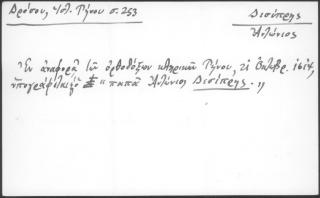 Δρόσου, Ἱστ. Τήνου σ. 253
Δισύπρης
Ἀντώνιος
"Ἐν ἀναφορᾷ τῶν ὀρθοδόξων κληρικῶν Τήνου, 21 Ὀκτωβρ. 1614,
ὑπογράφεται ὁ "παπᾶ Ἀντώνιος Δισύπρης.,,